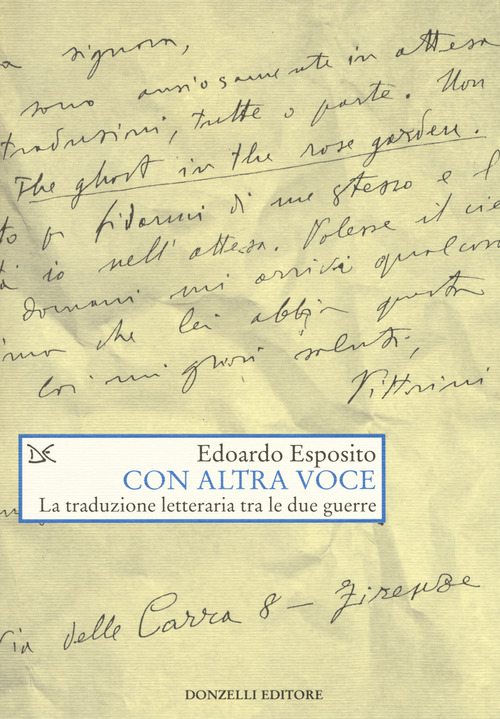 a signora,
sono ansiosamente in attesa
traduzioni, tutte o parte. Non
The ghost in the rose garden.
fidarmi di me stesso e l
io nell'attesa. Volesse il cie
domani mi arrivi qualcosa
che lei abbia questa
Coi miei migliori saluti,
Vittorini
DE
Edoardo Esposito
CON ALTRA VOCE
La traduzione letteraria tra le due guerre
Via delle Carra 8 — Firenze
DONZELLI EDITORE